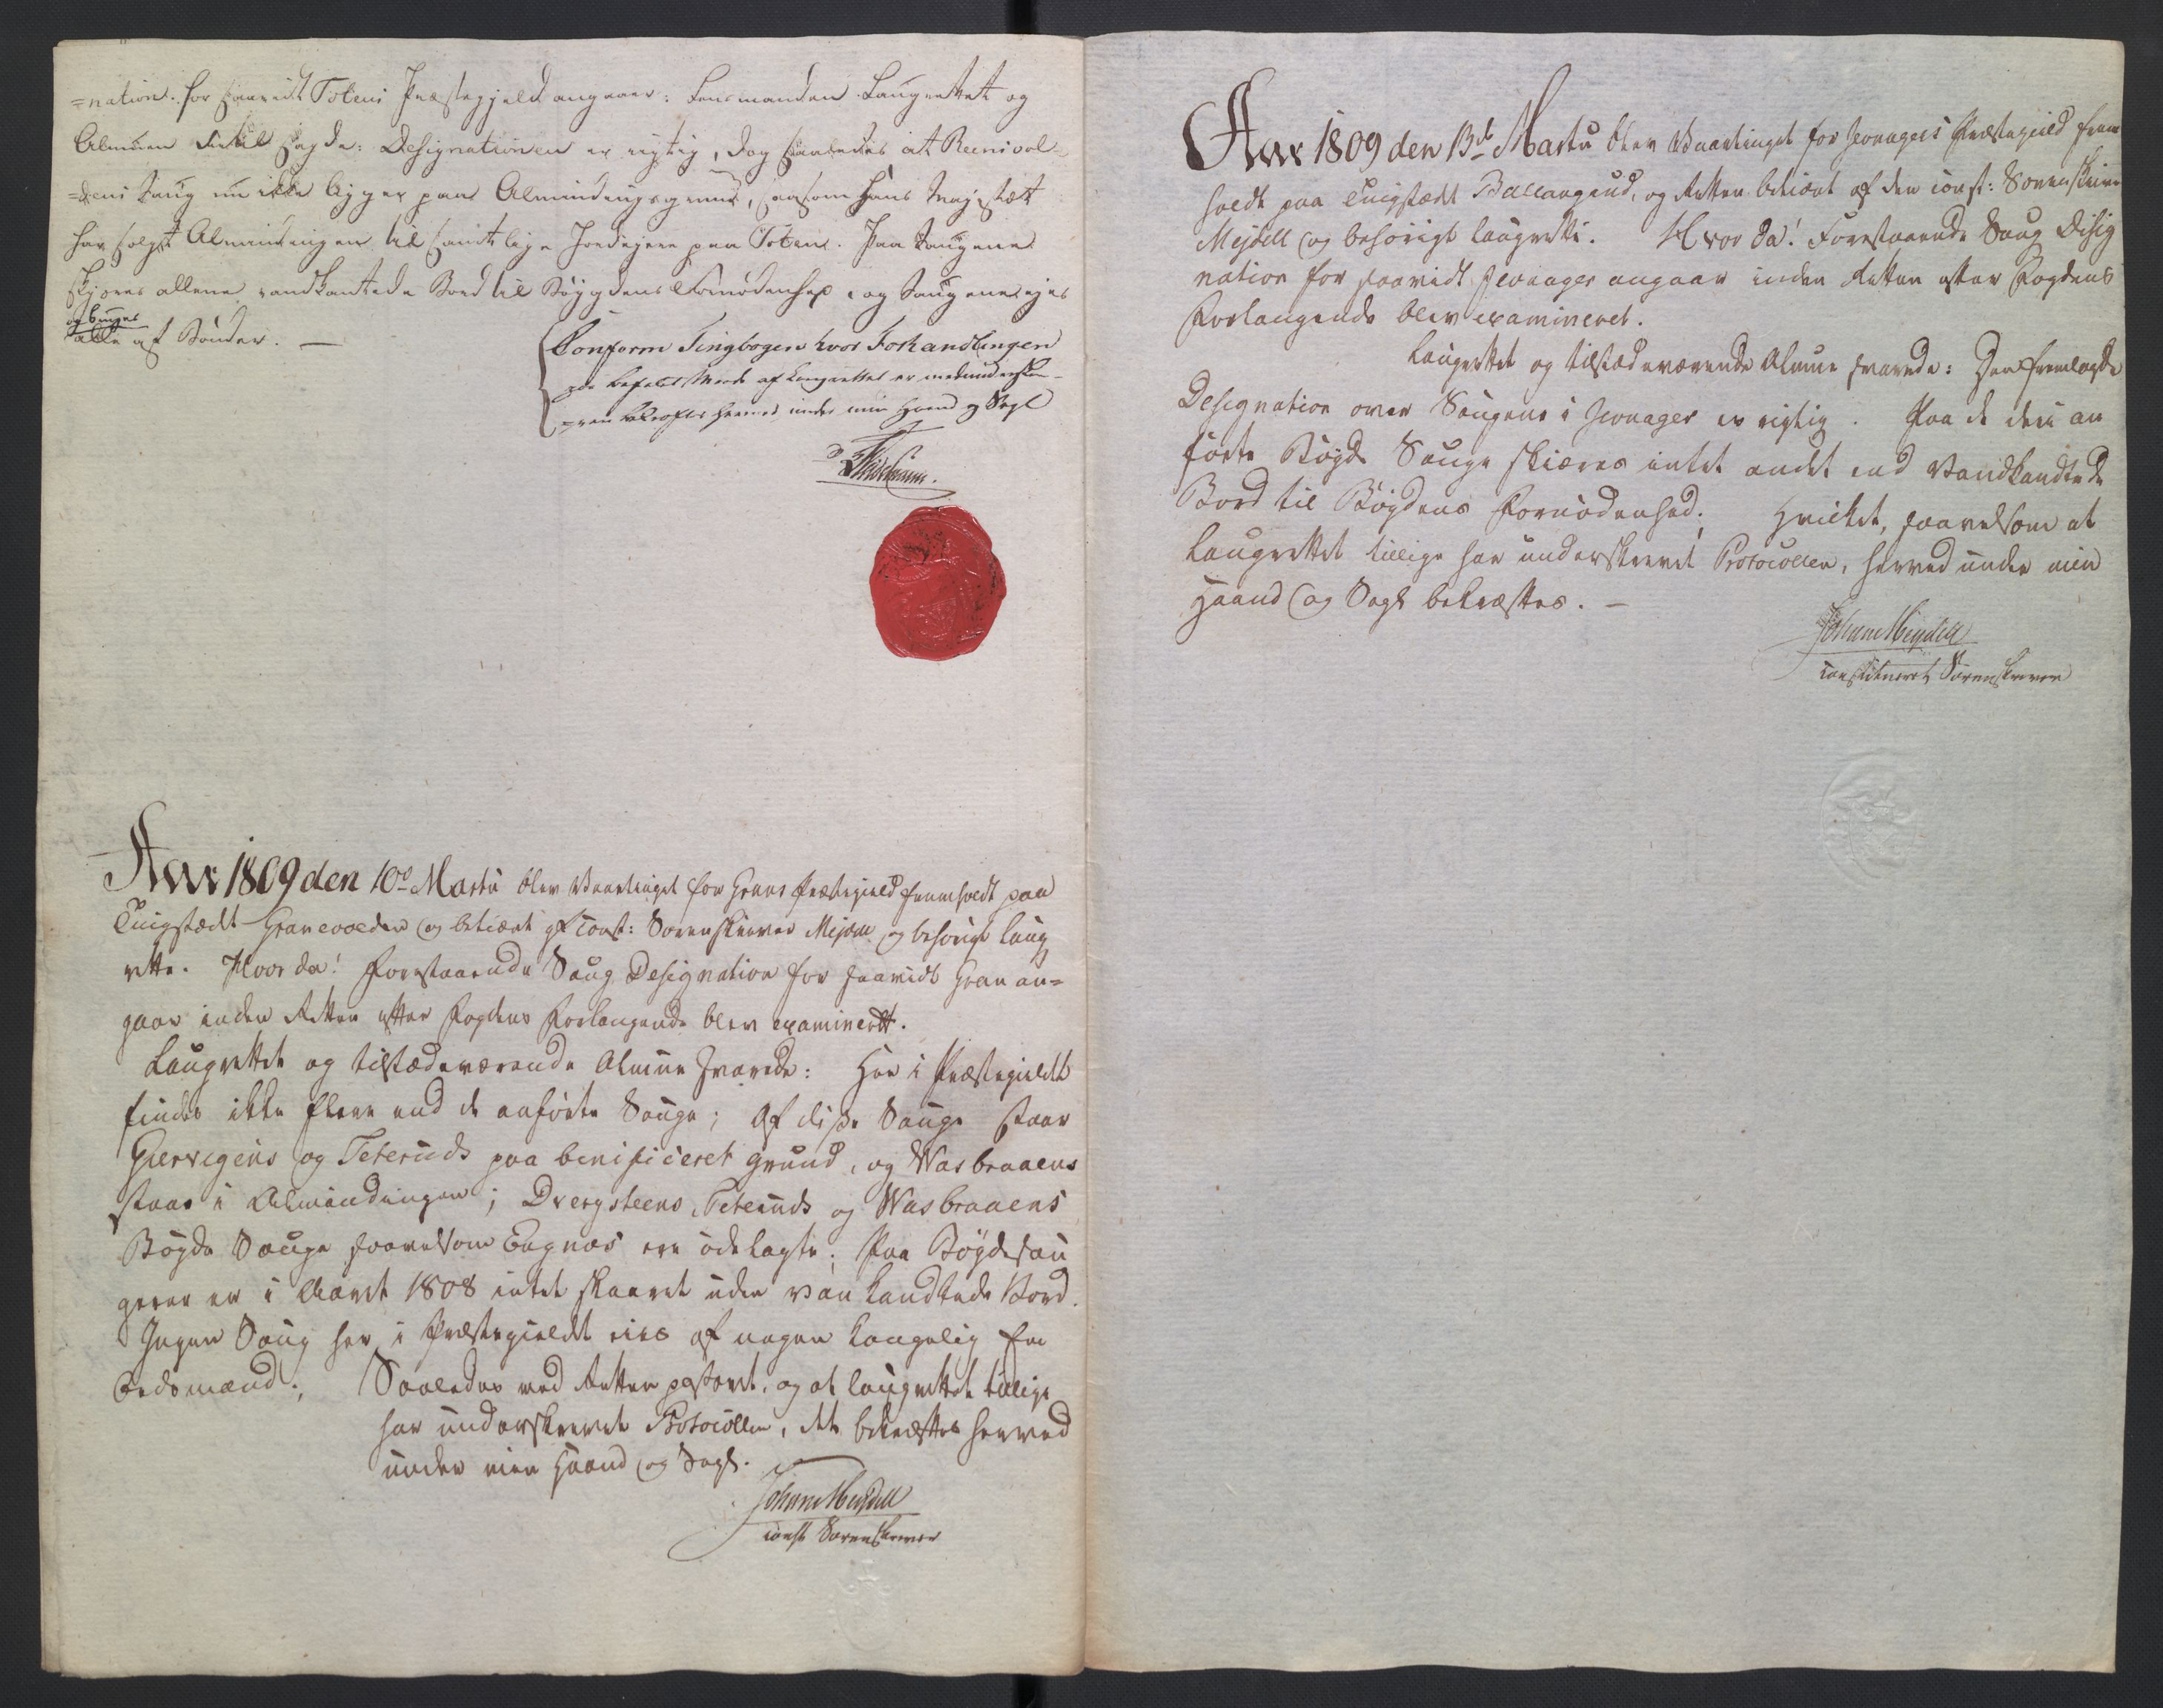 =nation. for saavidt Totens Præstegjeld angaaer: Lensmanden Laugrettet og
Almuen dertil sagde: Designationen er rigtig, dog saaledes at Reenivol-
=dens Saug nu ikke ligger paa Almindingsgrund, saasom Hans Majestæt
har solgt Almindingen til samtlige Jordejere paa Toten. Paa Saugene
skjæres allene vandkantede Bord til Bøygdens Fornødenhed, og Saugene ejes
og bruges
alle af Bønder. —
Conform Tingbogen hvor Forhandlingen
paa befalet Maade af Laugrettet er medunderskre-
=ven bekræftes herved under min Haand og Segl
Aar 1809 den 10de Martii blev Vaartinget for Grans Præstegield fremholdt paa
Tingstædet Granevolden og betient af const: Sorenskriver Mejdell og behørige Laug
rette. Hvor da! Forestaaende Saug Designation for saavidt Gran an=
gaar inden Retten efter Fogdens Forlangende blev examineret.
Laugrettet og tilstædeværende Almue svarede: Her i Præstegieldet
findes ikke flere end de anførte Sauge; Af disse Sauge staar
Giervigens og Teteruds paa benificeret Grund, og Wasbraaens
staar i Almindingen; Dvergsteens, Teteruds og Wasbraaens
Bøgde Sauge saavelsom Engnæs ere ødelagte. Paa Bøgdesau
gerne er i Aaret 1808 intet skaaret uden van kandtede Bord.
Ingen Saug her i Præstegieldet eies af nogen kongelig Em
bedsmænd. Saaledes ved Retten passeret, og at Laugrettet tillige
har underskrevet Protocollen, det bekræftes herved
under min Haand og Segl.
Johan Mejdell
const Sorenskriver
Aar 1809 den 13de Martii blev Vaartinget for Jevnagers Præstegield frem
holdt paa Tingstædet Ballangrud, og Retten betient af den const: Sorenskriver
Mejdell og behørigt Laugrette. Hvor da! Forestaaende Saug Desig
nation for saavidt Jevnager angaar inden Retten efter Fogdens
Forlangende blev examineret.
Laugrettet og tilstædeværende Almue svarede: Den fremlagde
Designation over Saugene i Jevnager er rigtig. Paa de deri an
førte Bøgde Sauge skiæres intet andet end Vandkandtede
Bord til Bøgdens Fornødenhed. Hvilket, saavelsom at
Laugrettet tillige har underskrevet Protocollen, herved under min
Haand og Segl bekræftes. —
Johan Mejdell
constitueret Sorenskriver